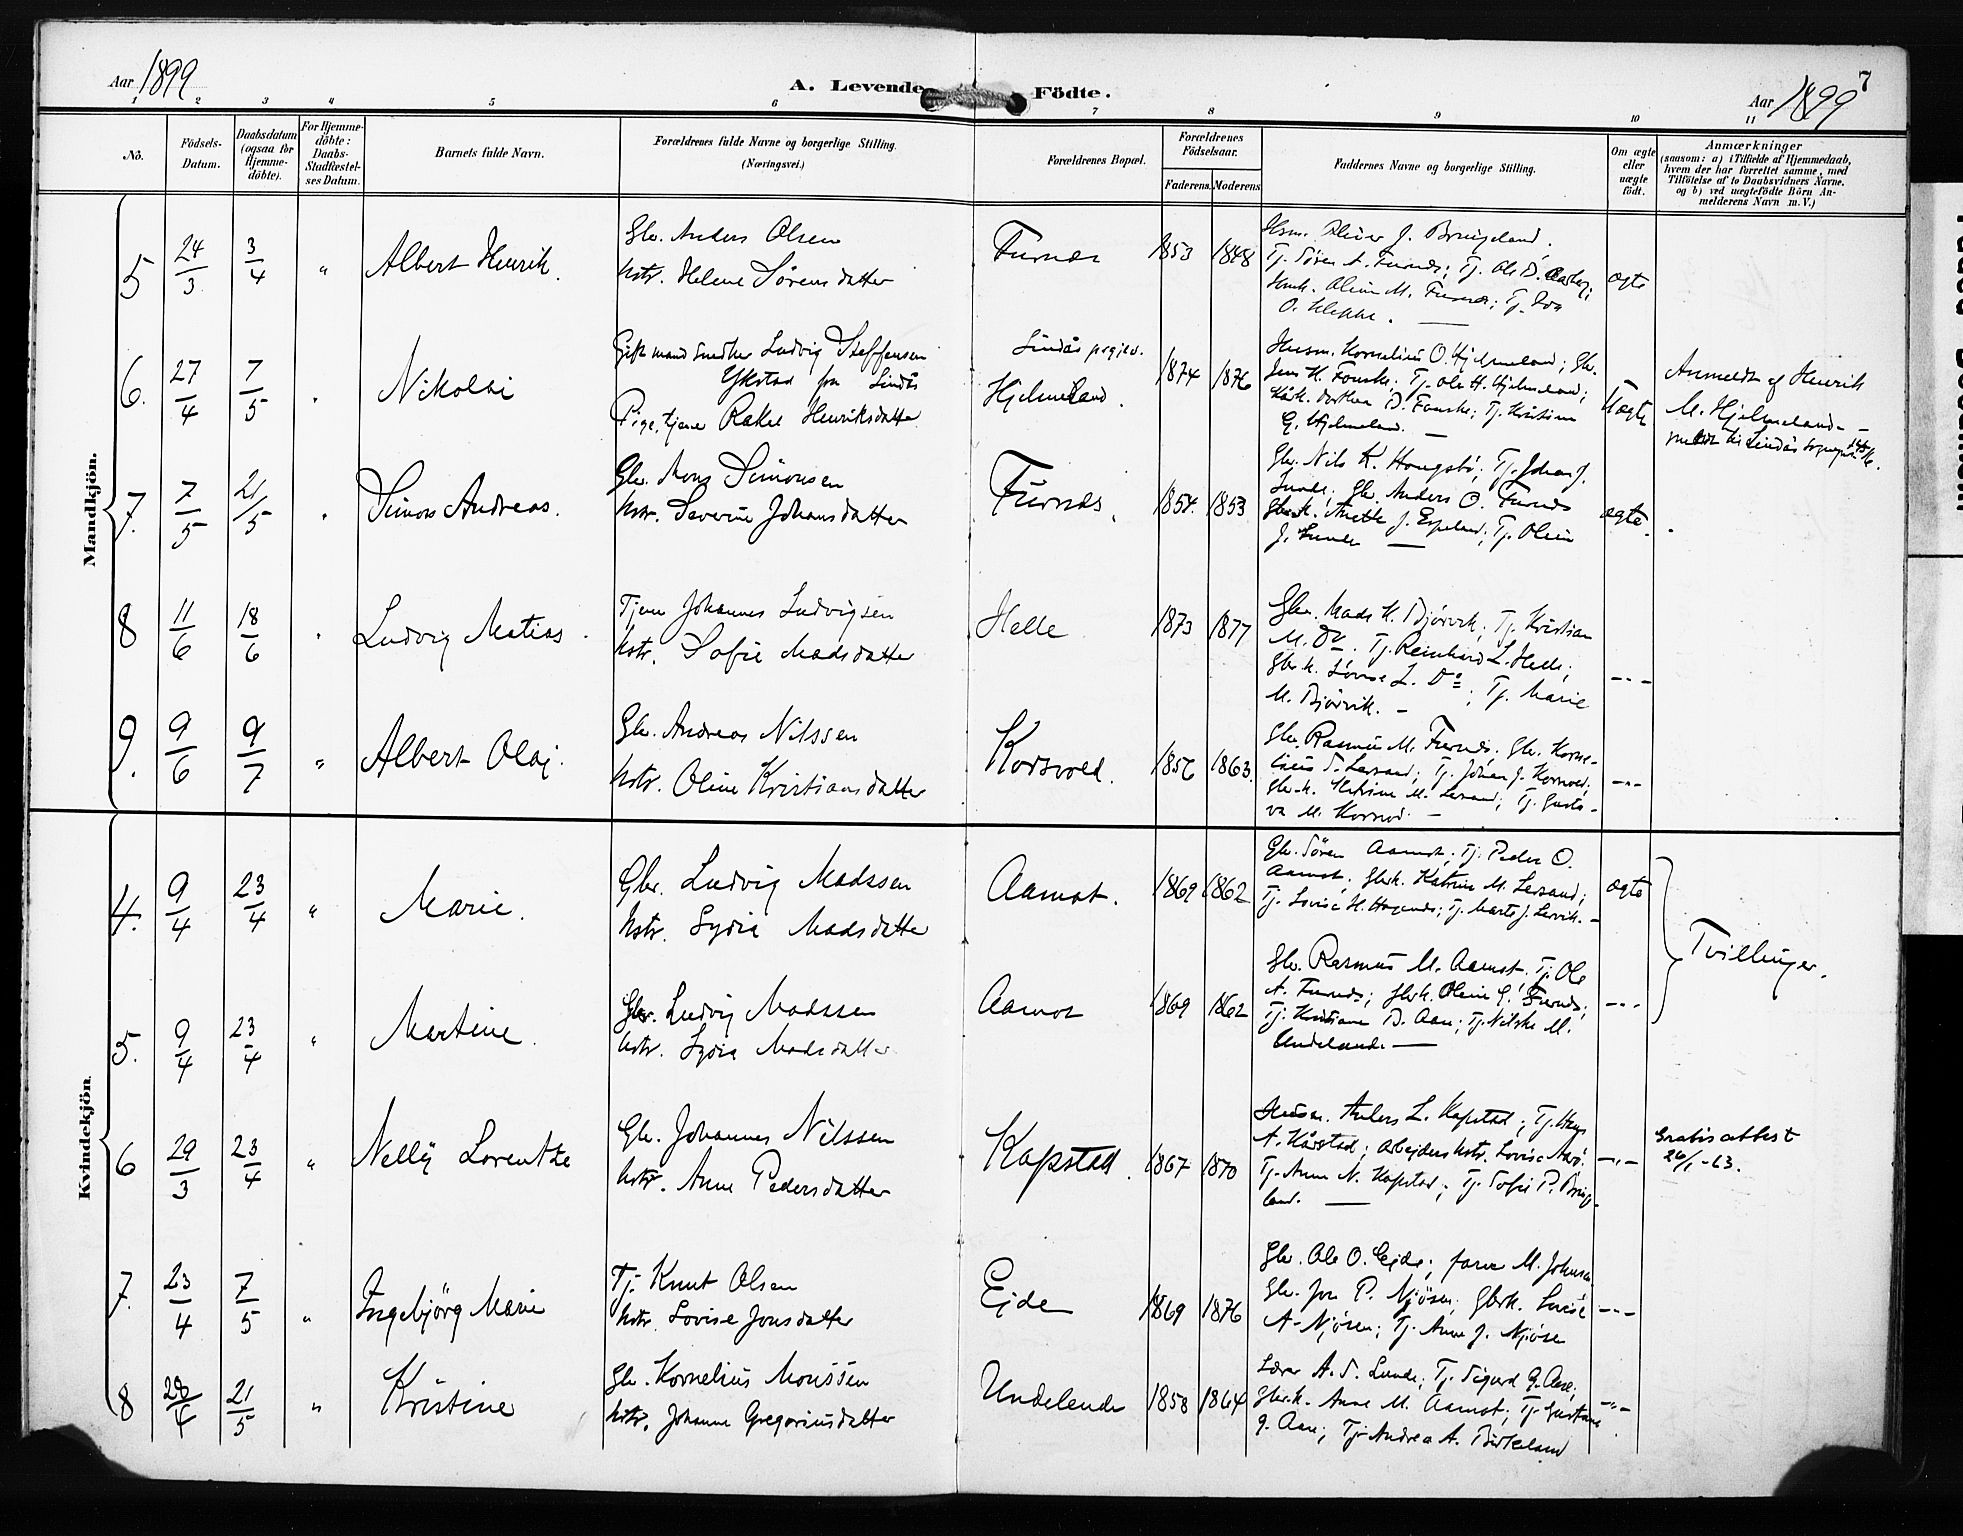 Aar 1899
A. Levende Födte.
7
Aar 1899
1 2 3 4 5 6 7 8 9 10 11
No.
Födsels-
Datum.
Daabsdatum
(ogsaa för
Hjemme-
döbte).
For Hjemme-
döbte:
Daabs-
Stadfæstel-
ses Datum.
Barnets fulde Navn.
Forældrenes fulde Navne og borgerlige Stilling.
(Næringsvei.)
Forældrenes Bopæl.
Forældrenes
Födselsaar.
Faderens. Moderens
Faddernes Navne og borgerlige Stilling.
Om ægte
eller
uægte
födt.
Anmærkninger
(saasom: a) i Tilfælde af Hjemmedaab,
hvem der har forrettet samme, med
Tilföielse af to Daabsvidners Navne.
og b) ved uægtefödte Börn An-
melderens Navn m. V.)
Mandkjön.
5
24/3
3/4
"
Albert Henrik.
Gbr. Anders Olsen
hstr. Helene Sörensdatter
Furnes
1853
1848
Hsm. Oliver J. Bringeland.
Tj. Sören A. Furnes; Tj. Ole D.
Olina M. Furnes; Tj.
O. Kleppe.
ægte
6.
27/4
7/5
"
Nikolai
Gift mand Snedker Ludvig Steffensen
Ykstad fra Lindås
Pige, tjener Rakel Henriksdatter
Lindås prgjeld.
Hjelmeland.
1874
1876
Husm. Kornelius O. Hjelmeland; Gbr.
Jens H. Fonske; Tj. Ole H. Hjelmeland;
Dorthea D. Fonske; Tj. Kristine
G. Hjelmeland. —
Uægte
Anmeldt af Henrik
M. Hjelmeland. -
meldt til Lindås sogneprest
7.
7/5
21/5
"
Simon Andreas.
Gbr. Mons Simonsen
hstr. Severine Johansdatter
Furnes.
1854.
1853
Gbr. Nils K. Hougsbö; Tj. Johan J.
Lunde; Gbr. Anders O. Furnes
Gbrk. Anette J. Espeland; Tj. Oline
J. Lunde —
ægte.
8
11/6
18/6
"
Ludvig Matias.
Tjener Johannes Ludvigsen
hstr. Sofie Madsdatter
Helle
1873
1877
Gbr. Mads K. Björvik; Tj. Kristian
M. Do. Tj. Reinhard L. Helle;
Gbr.k. Lovise L. Do; Tj. Marie
M. Björvik. -
-"-
9.
9/6
9/7
"
Albert Olaj.
Gbr. Andreas Nilssen
hstr. Oline Kristiansdatter
Korsvold.
1856
1863.
Gbr. Rasmus M. Furnes; Gbr. Korne-
lius S. Lersand; Tj. Johan J. Korsvold;
Gbr.k. Katrine M. Lersand; Tj. Gusta-
va M. Korsvol. -
-"-
Kvindekjön.
4.
9/4
23/4
"
Marie.
Gbr. Ludvig Madssen
hstr. Lydia Madsdatter
Aamot.
1869
1862
Gbr. Sören Aamot; Tj. Peder O.
Aamot, Gbrk. Katrine M. Lersand;
Tj. Lovise H.; Tj. Marta J. Lervik. -
ægte
Tvillinger.
5.
9/4
23/4
"
Martine.
Gbr. Ludvig Madssen
hstr. Lydia Madsdatter
Aamot
1869
1862
Gbr. Rasmus M. Aamot, Tj. Ole
A. Furnes; Gbrk. Oline G. Furnes;
Tj. Kristiane D. Aase; Tj. Nilske M.
Undelande. —
-"-
6
29/3
23/4
"
Nelly Lorentze
Gbr. Johannes Nilssen
hstr. Anne Pedersdatter
Kapstad.
1867
1870
Husm. Anders L. Kapstad; Tj. Hans
A. Kårstad; Arbeiders hstr. Lovise
Tj. Anne N. Kapstad; Tj. Sofie P. Bringe-
land. —
-"-
Gratisattest
26/1-63.
7.
23/4
7/5
"
Ingebjörg Marie
Tj. Knut Olsen
hstr. Lovise Jonsdatter
Ejde
1869
1876
Gbr. Ole O. Ejde; M. Johnsen
Gbr. Jon P. Njösen; Gbrk. Lucie
A. Njösen; Tj. Anne J. Njösen
-"-
8
28/4
21/5
"
Kristine
Gbr. Kornelius Monssen
hstr. Johanne Gregoriusdatter
Undelande
1858
1864
Lærer A. S. Lunde; Tj. Sigurd G. Aase;
Gbr.k. Anne M. Aamot; Tj. Gustava
G. Aase; Tj. Andrea A. Birkeland
-"-